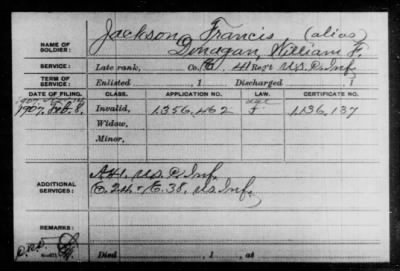 Jackson, Francis (alias)
NAME OF SOLDIER: Donagan, William F.
SERVICE: Late rank, Co. E, 41 Reg't U.S. C. Inf.
TERM OF SERVICE: Enlisted , 1 Discharged , 1
DATE OF FILING. CLASS. APPLICATION NO. LAW. CERTIFICATE NO.
1907. Feb. 8. Invalid, 1.356.462 1.136.137
Widow,
Minor,
ADDITIONAL SERVICES: A 41. U.S. C. Inf.
E. 38. U.S. Inf.
REMARKS:
Died , 1 , at